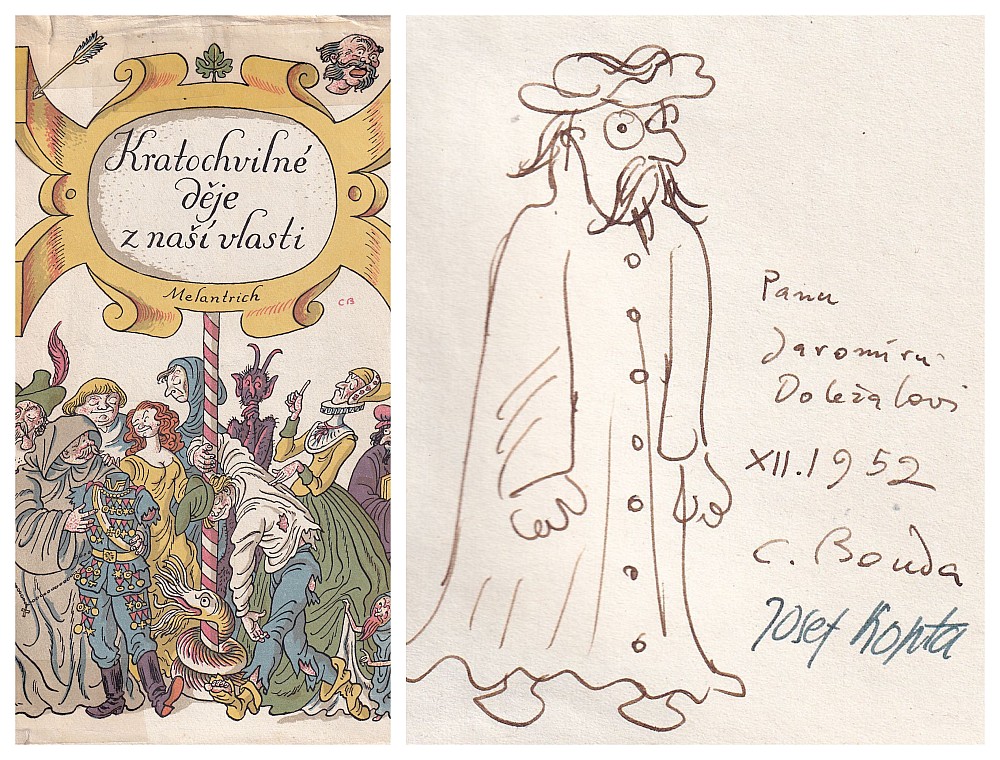 Kratochvilné
děje
z naší vlasti
Melantrich
CB
Panu
Jaromíru
Doležalovi
XII. 1952
C. Bouda
Josef Kopta